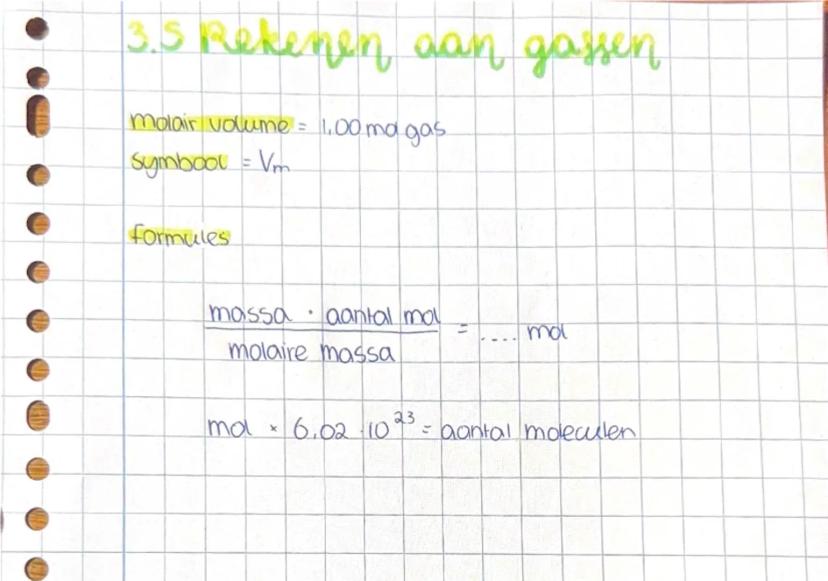 3.5 Rekenen aan gassen
molair volume = 1,00 mol gas
symbool = Vm
formules
massa · aantal mol
molaire massa
= .... mol
mol × 6,02 · 10²³ = aantal moleculen